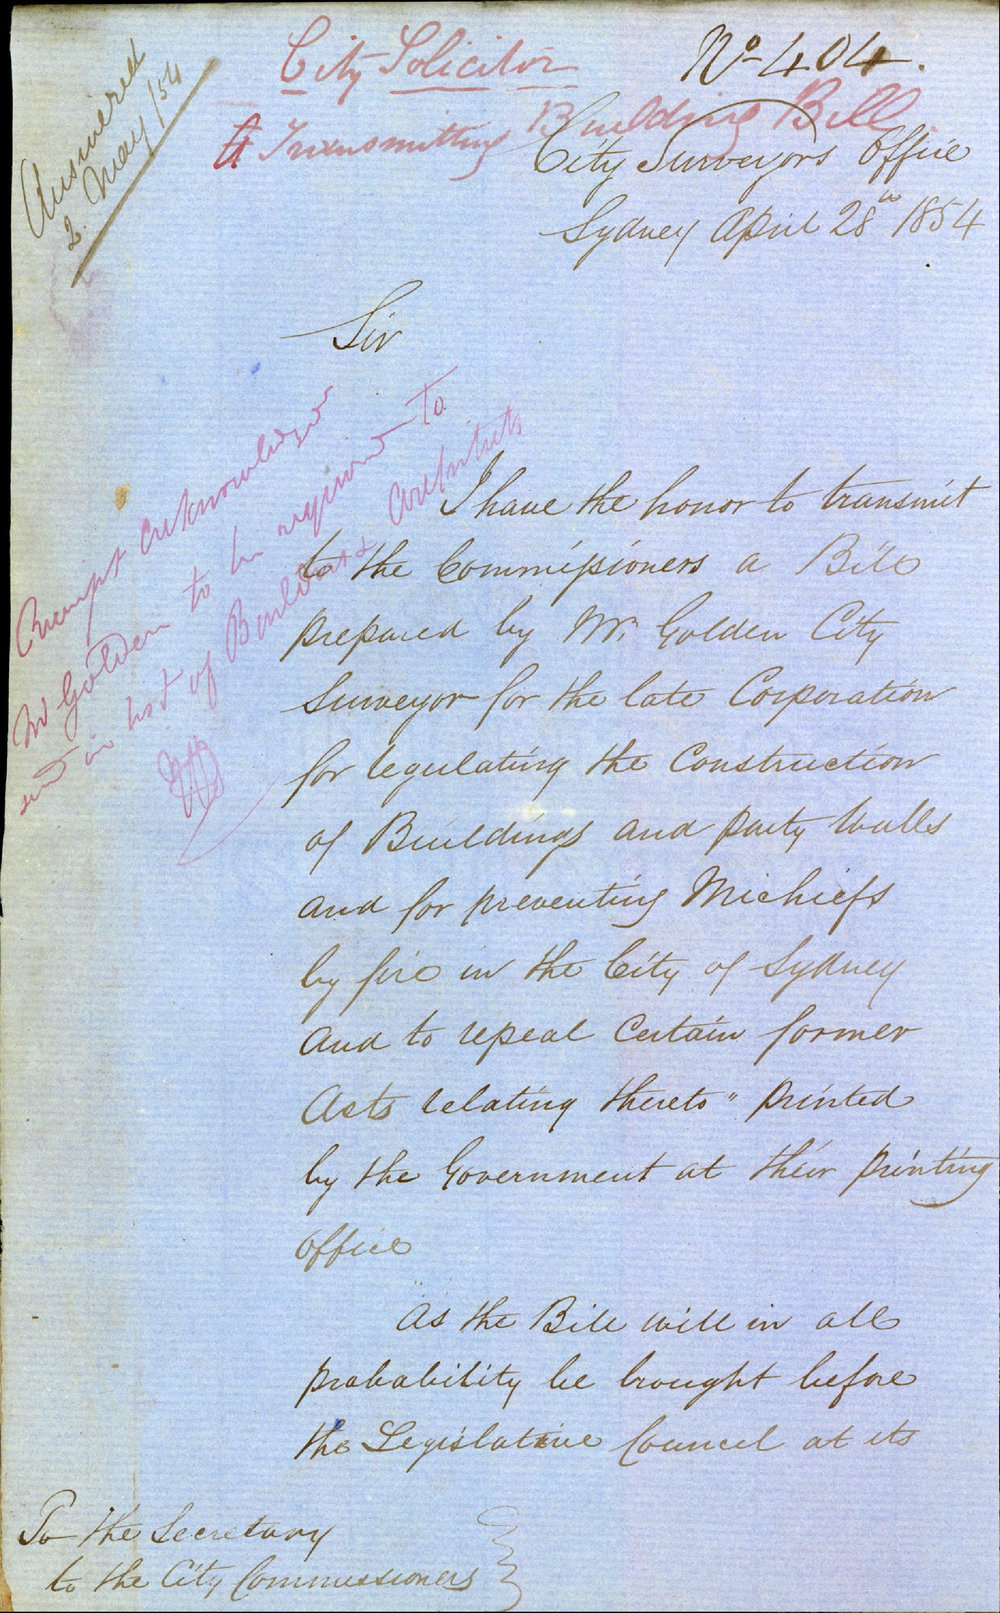 City Solicitor
No 404.
Transmitting Building Bill
Answered
2. May /54
City Surveyors Office
Sydney April 28th 1854
Sir
Receipt acknowledged
Mr Golden to be required to
send in list of Builders &
I have the honor to transmit
to the Commissioners a Bill
prepared by Mr. Golden City
Surveyor for the late Corporation
for regulating the Construction
of Buildings and party Walls
and for preventing Michiefs
by fire in the City of Sydney
and to repeal Certain former
Acts relating thereto" printed
by the Government at their printing
office
As the Bill will in all
probability be brought before
the Legislative Council at its
To the Secretary
to the City Commissioners